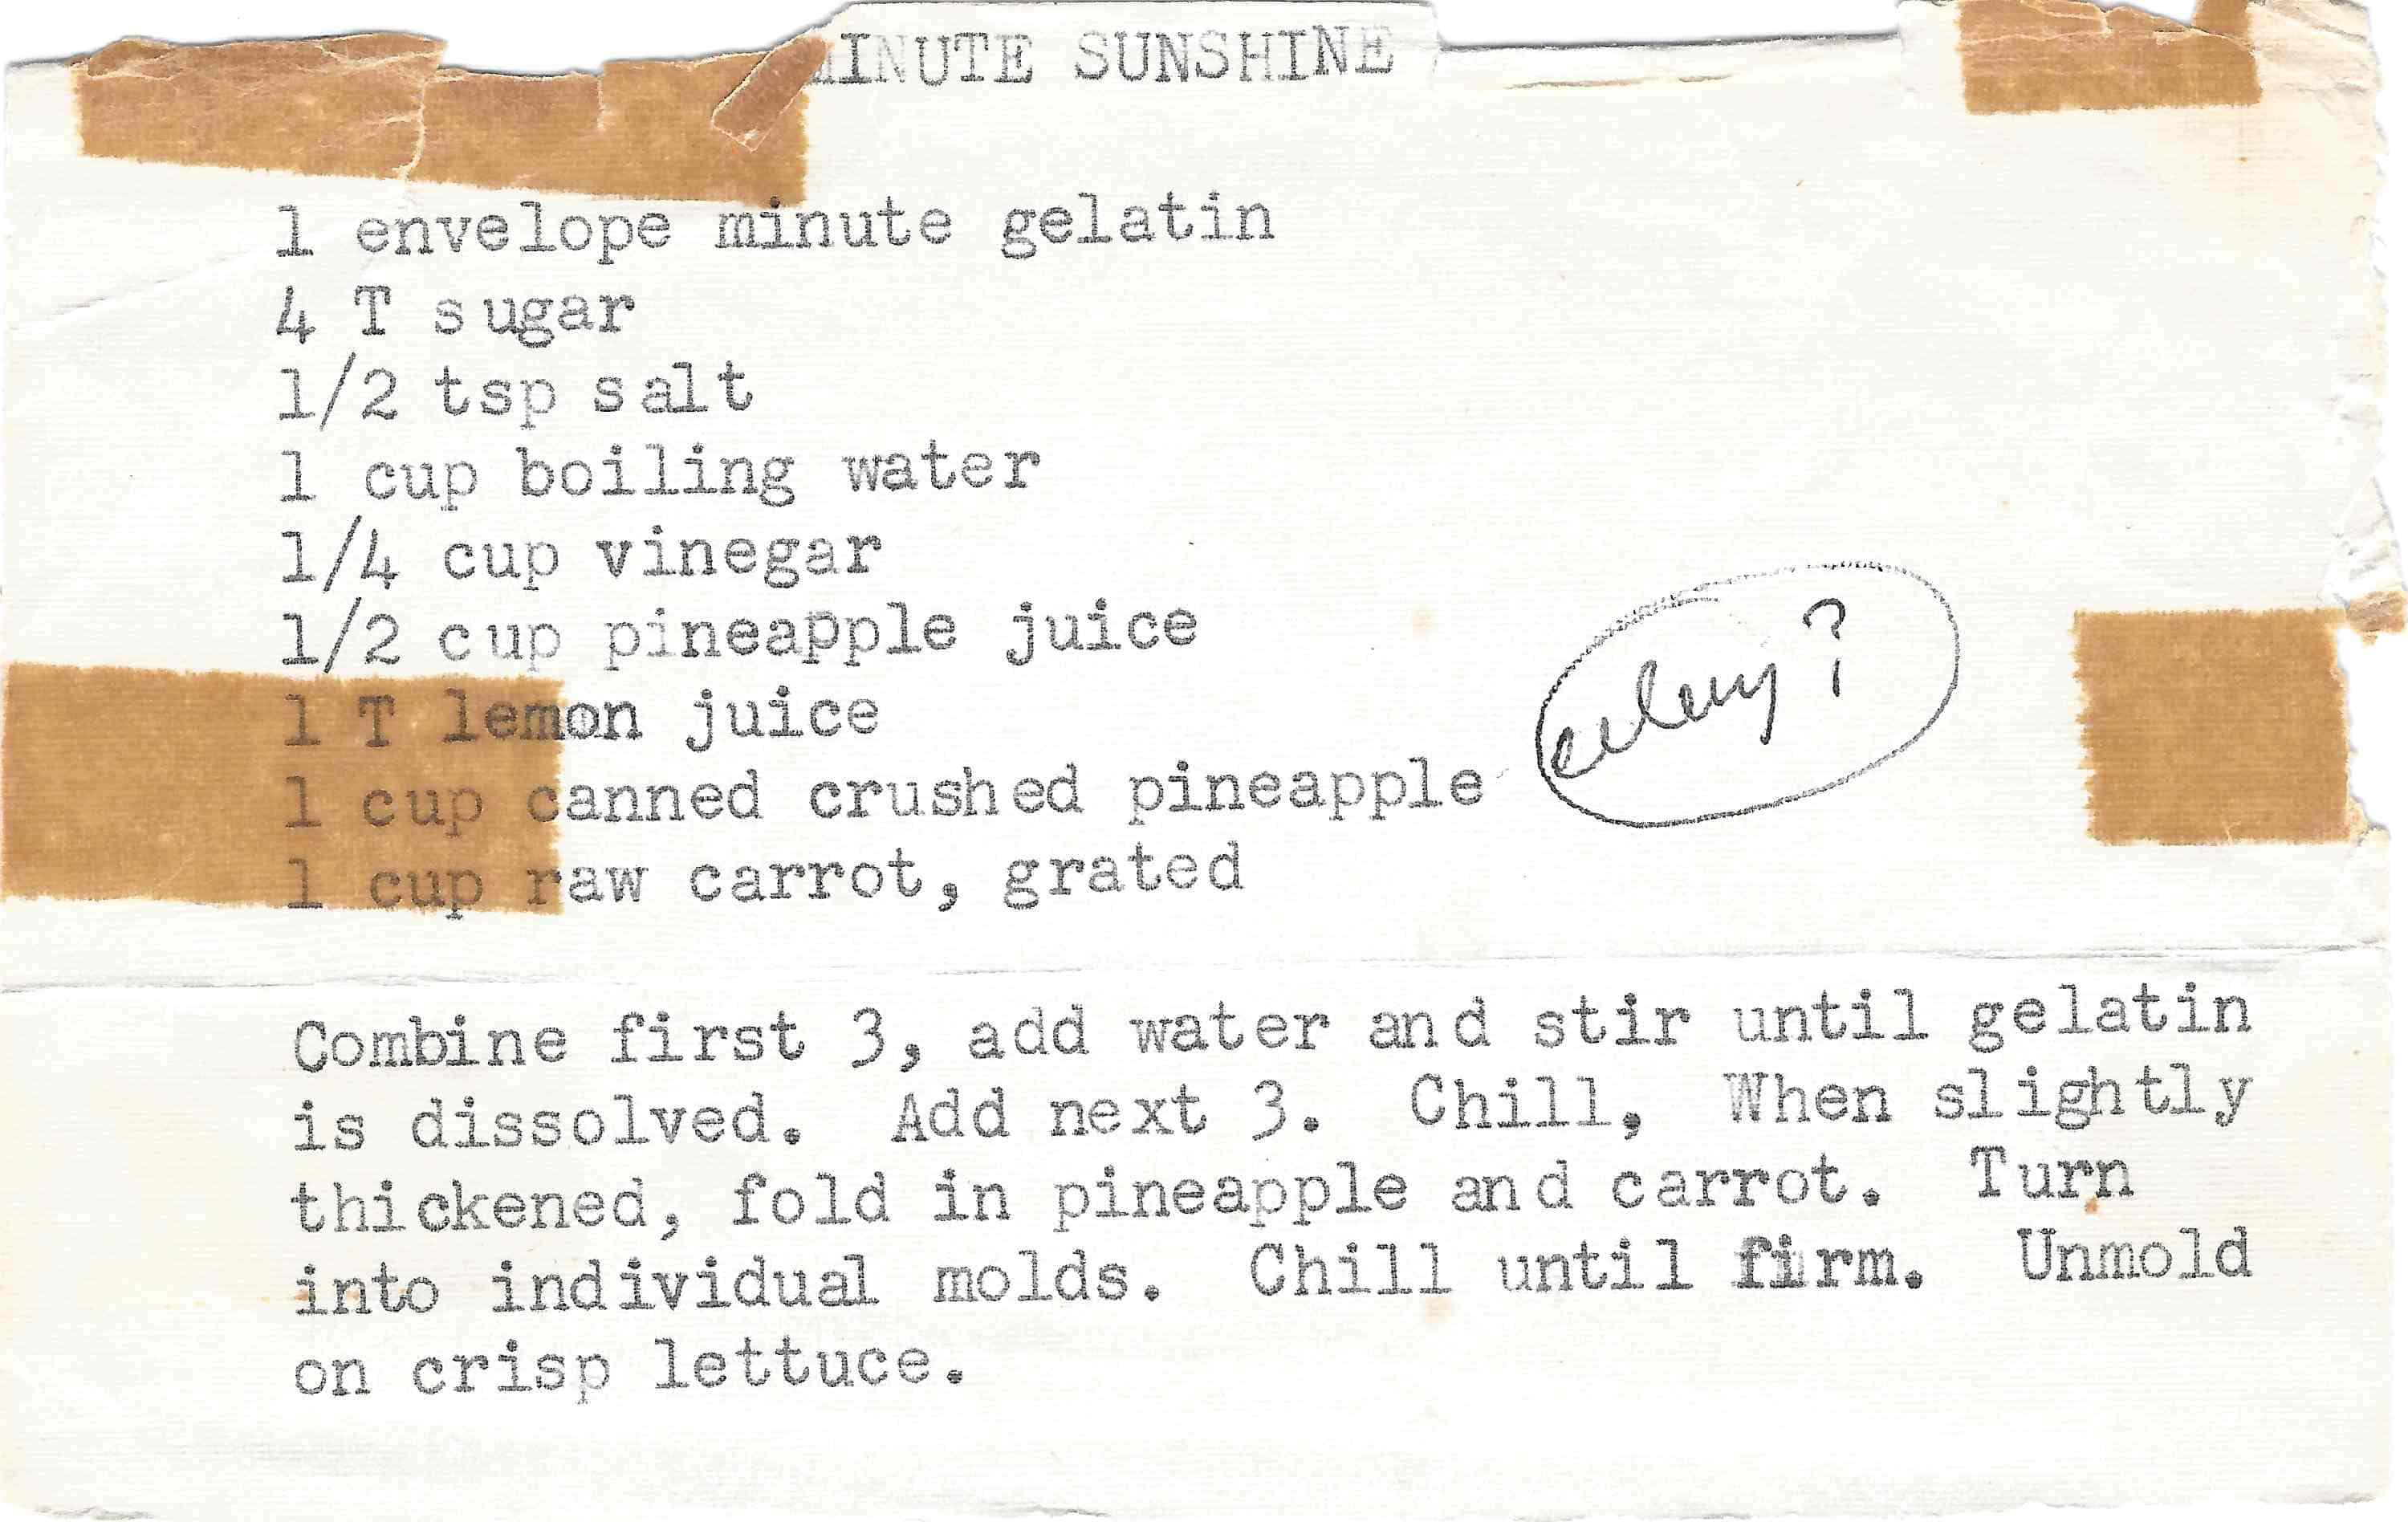 MINUTE SUNSHINE
1 envelope minute gelatin
4 T sugar
1/2 tsp salt
1 cup boiling water
1/4 cup vinegar
1/2 cup pineapple juice
1 T lemon juice
1 cup canned crushed pineapple
celery?
1 cup raw carrot, grated
Combine first 3, add water and stir until gelatin
is dissolved. Add next 3. Chill, When slightly
thickened, fold in pineapple and carrot. Turn
into individual molds. Chill until firm. Unmold
on crisp lettuce.